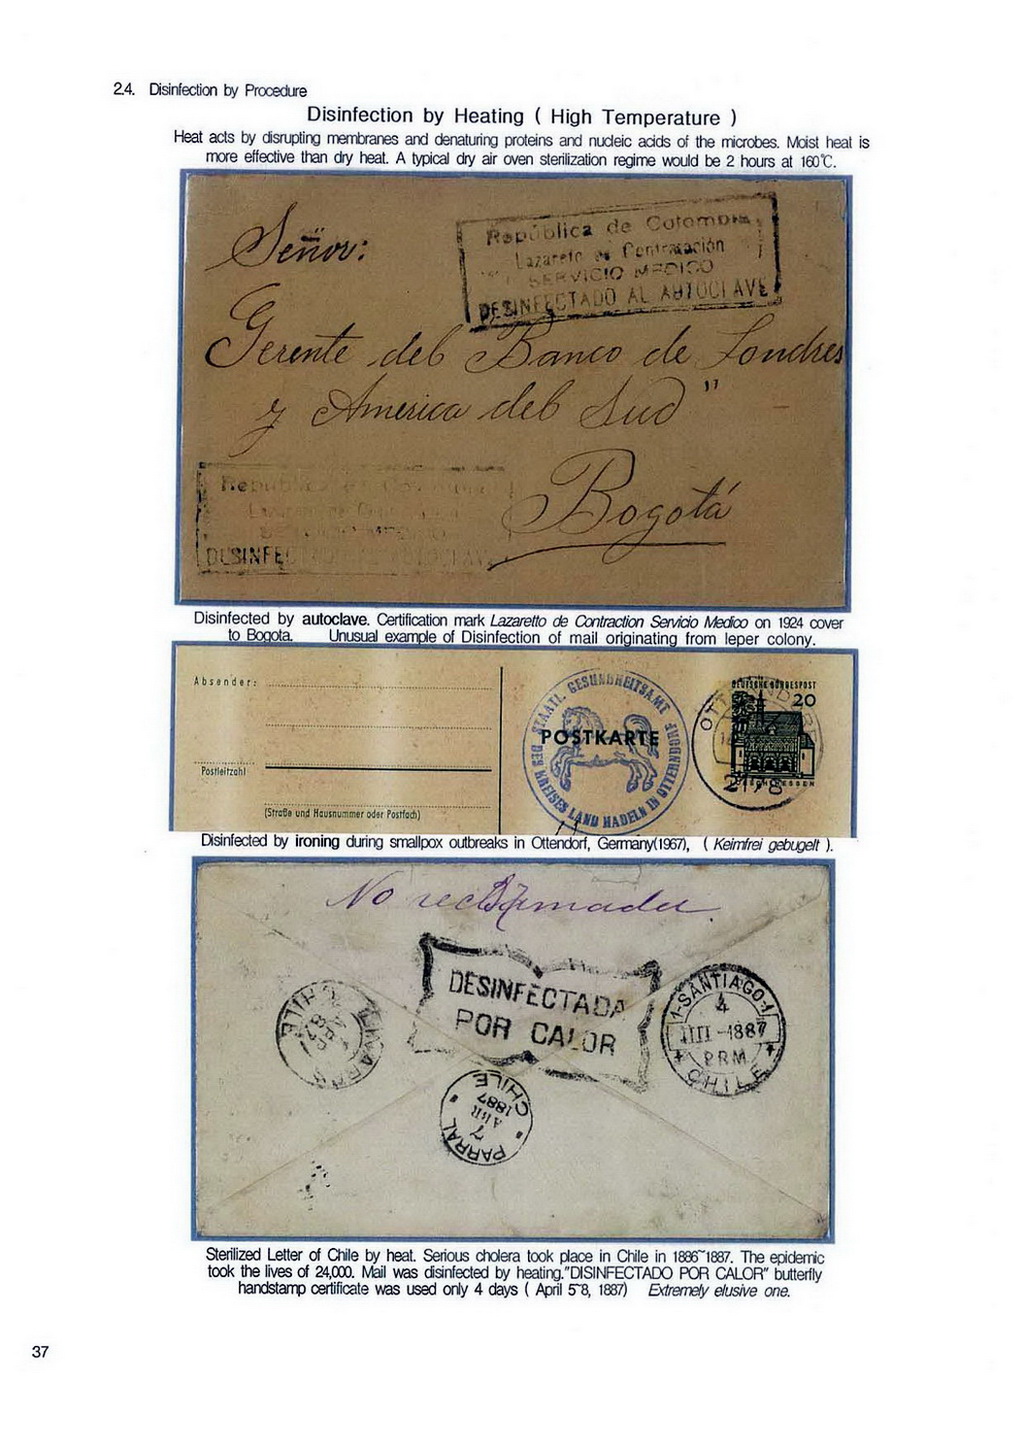 2.4. Disinfection by Procedure
Disinfection by Heating ( High Temperature )
Heat acts by disrupting membranes and denaturing proteins and nucleic acids of the microbes. Moist heat is
more effective than dry heat. A typical dry air oven sterilization regime would be 2 hours at 160℃.
Señor:
República de Colombia
Lazareto de Contratación
SERVICIO MEDICO
DESINFECTADO AL AUTOCLAVE
Gerente del Banco de Londres
y America del Sud"
Bogotá
República de Colombia
SERVICIO MEDICO
DESINFECTADO AL AUTOCLAVE
Disinfected by autoclave. Certification mark Lazaretto de Contraction Servicio Medico on 1924 cover
to Bogota. Unusual example of Disinfection of mail originating from leper colony.
Absender:
Postleitzahl
(Straße und Hausnummer oder Postfach)
STAATL. GESUNDHEITSAMT
DES KREISES LAND HADELN IN OTTERNDORF
POSTKARTE
DEUTSCHE BUNDESPOST
20
OTTERNDORF
2178
Disinfected by ironing during smallpox outbreaks in Ottendorf, Germany(1967), ( Keimfrei gebugelt ).
No reclamada
DESINFECTADA
POR CALOR
LINARES CHILE
1-SANTIAGO-1
4
IIII-1887
PRM
CHILE
PARRAL
7
ABR
1887
CHILE
Sterilized Letter of Chile by heat. Serious cholera took place in Chile in 1886~1887. The epidemic
took the lives of 24,000. Mail was disinfected by heating."DISINFECTADO POR CALOR" butterfly
handstamp certificate was used only 4 days ( April 5~8, 1887) Extremely elusive one.
37